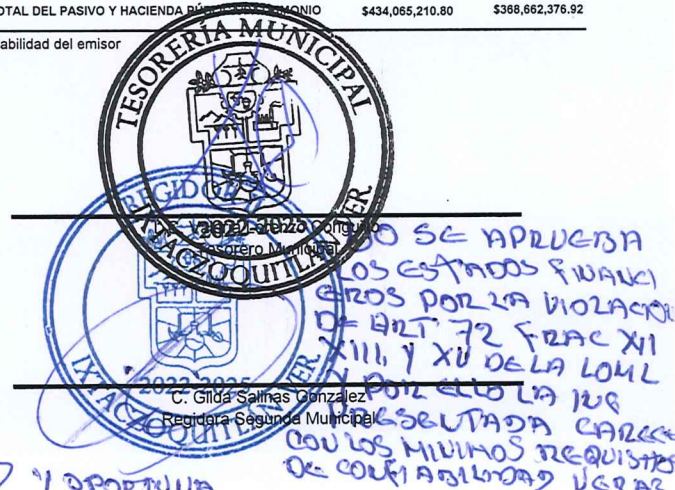 OTAL DEL PASIVO Y HACIENDA PÚBLICA/PATRIMONIO $434,065,210.80 $368,662,376.92
abilidad del emisor
TESORERÍA MUNICIPAL
2022-2025
IXTACZOQUITLAN, VER.
Lorenzo
Tesorero Municipal
REGIDOR
2022-2025
IXTACZOQUITLAN, VER.
C. Gilda Salinas González
Regidora Segunda Municipal
NO SE APRUEBA
LOS ESTADOS FINANCI
EROS POR LA VIOLACION
DE ART 72 FRAC XII
XIII, Y XV DE LA LOML
Y POR ELLO LA
PRESENTADA CARECE
CON LOS MINIMOS REQUISITOS
DE CONFIABILIDAD VERAZ
Y OPORTUNA